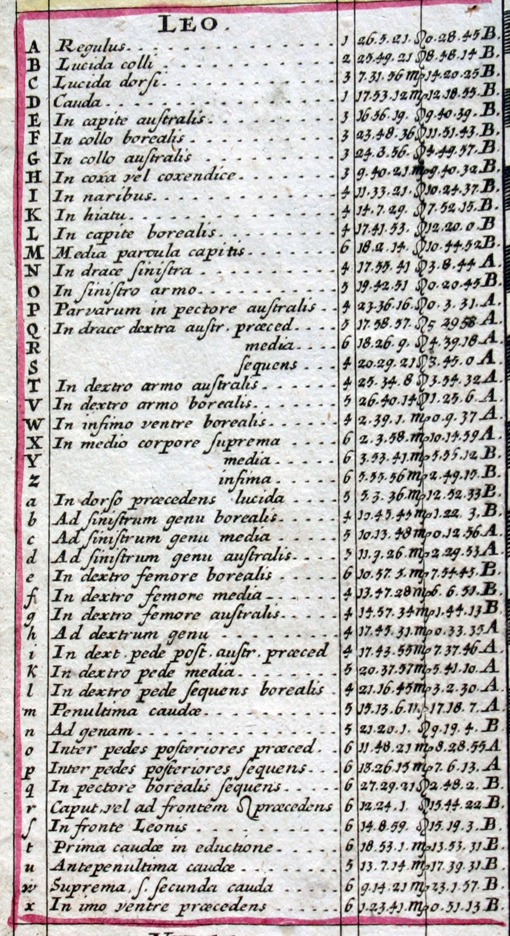 LEO.
A Regulus. 1 26.5.21. ♌ 0.28.45 B.
B Lucida colli 2 25.49.21 ♌ 8.48.14 B.
C Lucida dorſi. 3 7.31.56 ♍ 14.20.25 B.
D Cauda. 1 17.53.12 ♍ 12.18.55 B.
E In capite auſtralis. 3 16.56.19. ♌ 9.40.39. B.
F In collo borealis. 3 23.48.36 ♌ 11.51.43. B.
G In collo auſtralis 3 24.3.56. ♌ 4.49.57. B.
H In coxa vel coxendice. 3 9.40.21. ♍ 9.40.32 B.
I In naribus. 4 11.33.21. ♌ 10.24.37. B.
K In hiatu. 4 14.7.29. ♌ 7.52.15. B.
L In capite borealis. 4 17.41.53. ♌ 12.20.0 B.
M Media parvula capitis 6 18.2.14. ♌ 10.44.52 B.
N In drace ſiniſtra 4 17.55.41 ♌ 3.8.44 A.
O In ſiniſtro armo. 5 19.42.51 ♌ 0.20.45 B.
P Parvarum in pectore auſtralis 4 23.36.16. ♌ 0.3.31. A.
Q In drace dextra auſtr. præced. 5 17.58.57. ♌ 5 29 58 A.
R media. 6 18.26.9. ♌ 4.39.18. A.
S ſequens 4 20.29.21 ♌ 3.45.0 A.
T In dextro armo auſtralis. 4 25.34.8 ♌ 3.54.32 A.
V In dextro armo borealis. 5 26.40.14 ♌ 1.25.6. A.
W In infimo ventre borealis 4 2.39.1. ♍ 0.9.37 A.
X In medio corpore ſuprema 6 2.3.58. ♍ 10.14.59 A.
Y media 6 3.53.41. ♍ 5.55.12 B.
Z infima. 6 5.55.56 ♍ 2.49.15. B.
a In dorſo præcedens lucida 5 5.3.36 ♍ 12.52.33 B.
b Ad ſiniſtrum genu borealis. 4 ♍ 1.22.3. B.
c Ad ſiniſtrum genu media 5 10.13.48 ♍ 0.12.56 A.
d Ad ſiniſtrum genu auſtralis. 5 11.9.26 ♍ 2.29.53 A.
e In dextro femore borealis 6 10.57.5. ♍ 7.54.45 B.
f In dextro femore media. 4 13.47.28 ♍ 6.6.51. B.
g In dextro femore auſtralis. 4 14.57.34 ♍ 1.44.13 B.
h Ad dextrum genu 4 17.45.31. ♍ 0.33.35 A
i In dext. pede poſt. auſtr. præced 4 17.43.55 ♍ 7.37.46 A.
k In dextro pede media. 5 20.37.57 ♍ 5.41.10. A.
l In dextro pede ſequens borealis 4 21.16.45 ♍ 3.2.30. A.
m Penultima caudæ 5 15.13.6. ♍ 17.18.7. A.
n Ad genam. 5 21.20.1. ♌ 9.19.4. B
o Inter pedes poſteriores præced. 6 11.48.21 ♍ 8.28.55 A
p Inter pedes poſteriores ſequens. 6 13.26.15 ♍ 7.6.13. A
q In pectore borealis ſequens. 6 27.29.21 ♌ 2.48.2. B.
r Caput, vel ad frontem ♌ præcedens 6 12.24.1. ♌ 15.44.22 B.
ſ In fronte Leonis 6 14.8.59. ♌ 15.19.3. B.
t Prima caudæ in eductione 6 18.53.1. ♍ 13.53.31 B.
u Antepenultima caudæ 5 13.7.14. ♍ 17.39.31 B.
w Suprema. ſ. ſecunda cauda 6 9.14.21 ♍ 23.1.57. B.
x In imo ventre præcedens 6 1.23.41. ♍ 0.51.13 B.